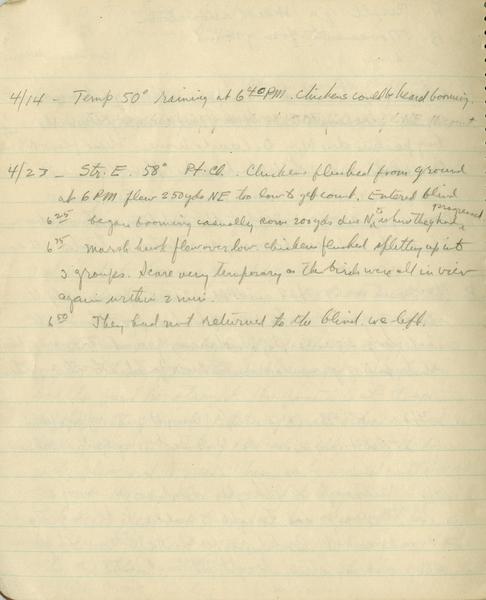 4/14 - Temp 50° raining at 6 40 PM. Chickens could be heard booming.
4/23 - Str. E. 58° Pt. Cl. Chickens flushed from ground
at 6 PM flew 250 yds NE too low to get count. Entered blind
6 25 began booming casually some 200 yds due N, is where they had progressed
6 35 marsh hawk flew over low. chickens flushed splitting up into
3 groups. Scare very temporary as the birds were all in view
again within 2 min.
6 50 They had not returned to the blind. we left.